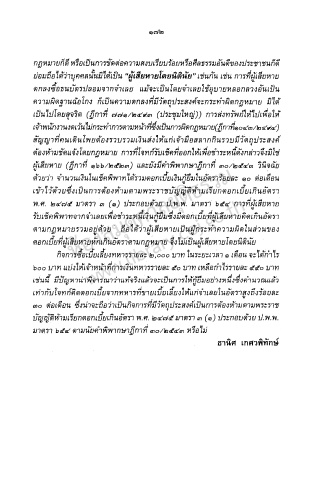 ๑๗๒
กฎหมายก็ดี หรือเป็นการขัดต่อความสงบเรียบร้อยหรือศีลธรรมอันดีของประชาชนก็ดี
ย่อมถือได้ว่าบุคคลนั้นมิได้เป็น "ผู้เสียหายโดยนิตินัย" เช่นกัน เช่น การที่ผู้เสียหาย
ตกลงซื้อธนบัตรปลอมจากจำเลย แม้จะเป็นโดยจำเลยใช้อุบายหลอกลวงอันเป็น
ความผิดฐานฉ้อโกง ก็เป็นความตกลงที่มีวัตถุประสงค์จะกระทำผิดกฎหมาย มิใช่
เป็นไปโดยสุจริต (ฎีกาที่ ๗๗๑/๒๔๙๓ (ประชุมใหญ่)) การส่งทรัพย์ให้ไปเพื่อให้
เจ้าพนักงานงดเว้นไม่กระทำการตามหน้าที่ซึ่งเป็นการผิดกฎหมาย
สัญญาที่คนเดินโพยต้องรวบรวมเงินส่งให้แก่เจ้ามือสลากกินรวบมีวัตถุประสงค์
ต้องห้ามชัดแจ้งโดยกฎหมาย การที่โจทก์รับเช็คที่ออกให้เพื่อชำระหนี้ดังกล่าวจึงมิใช่
ผู้เสียหาย และยังมีคำพิพากษาฎีกาที่ ๓๐/๒๕๔๓ วินิจฉัย
ด้วยว่า จำนวนเงินในเช็คพิพาทได้รวมดอกเบี้ยเงินกู้ยืมในอัตราร้อยละ ๑๐ ต่อเดือน
เข้าไว้ด้วยซึ่งเป็นการต้องห้ามตามพระราชบัญญัติห้ามเรียกดอกเบี้ยเกินอัตรา
พ.ศ. ๒๔๗๕ มาตรา ๓ (๑) ประกอบด้วย ป.พ.พ. มาตรา ๖๕๔ การที่ผู้เสียหาย
รับเช็คพิพาทจากจำเลยเพื่อชำระหนี้เงินกู้ยืมซึ่งมีดอกเบี้ยที่ผู้เสียหายคิดเกินอัตรา
ตามกฎหมายรวมอยู่ด้วย ถือได้ว่าผู้เสียหายเป็นผู้กระทำความผิดในส่วนของ
ดอกเบี้ยที่ผู้เสียหายหักเกินอัตราตามกฎหมาย จึงไม่เป็นผู้เสียหายโดยนิตินัย
กิจการซื้อเบี้ยเลี้ยงทหารราย ๒,๐๐๐ บาท ในระยะเวลา ๑ เดือน จะได้กำไร
๖๐๐ บาท แบ่งให้เจ้าหน้าที่การเงินทหารรายละ ๕๐ บาท เหลือกำไรรายละ ๕๕๐ บาท
เช่นนี้ มีปัญหาน่าพิจารณาว่าแท้จริงแล้วจะเป็นการให้กู้ยืมอย่างหนึ่งซึ่งคำนวณแล้ว
เท่ากับโจทก์คิดดอกเบี้ยจากทหารที่ขายเบี้ยเลี้ยงให้แก่จำเลยในอัตราสูงถึงร้อยละ
๓๐ ต่อเดือน ซึ่งน่าจะถือว่าเป็นกิจการที่มีวัตถุประสงค์เป็นการต้องห้ามตามพระราช
บัญญัติห้ามเรียกดอกเบี้ยเกินอัตรา พ.ศ. ๒๔๗๕ มาตรา ๓ (๑) ประกอบด้วย ป.พ.พ.
มาตรา ๖๕๔ ตามนัยคำพิพากษาฎีกาที่ ๓๐/๒๕๔๓ หรือไม่
ธานิศ เกศวพิทักษ์